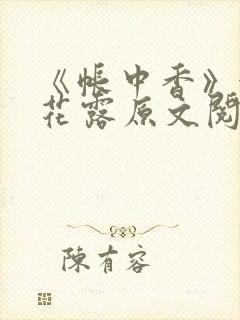 《帐中香》
花露原文阅
陳有容